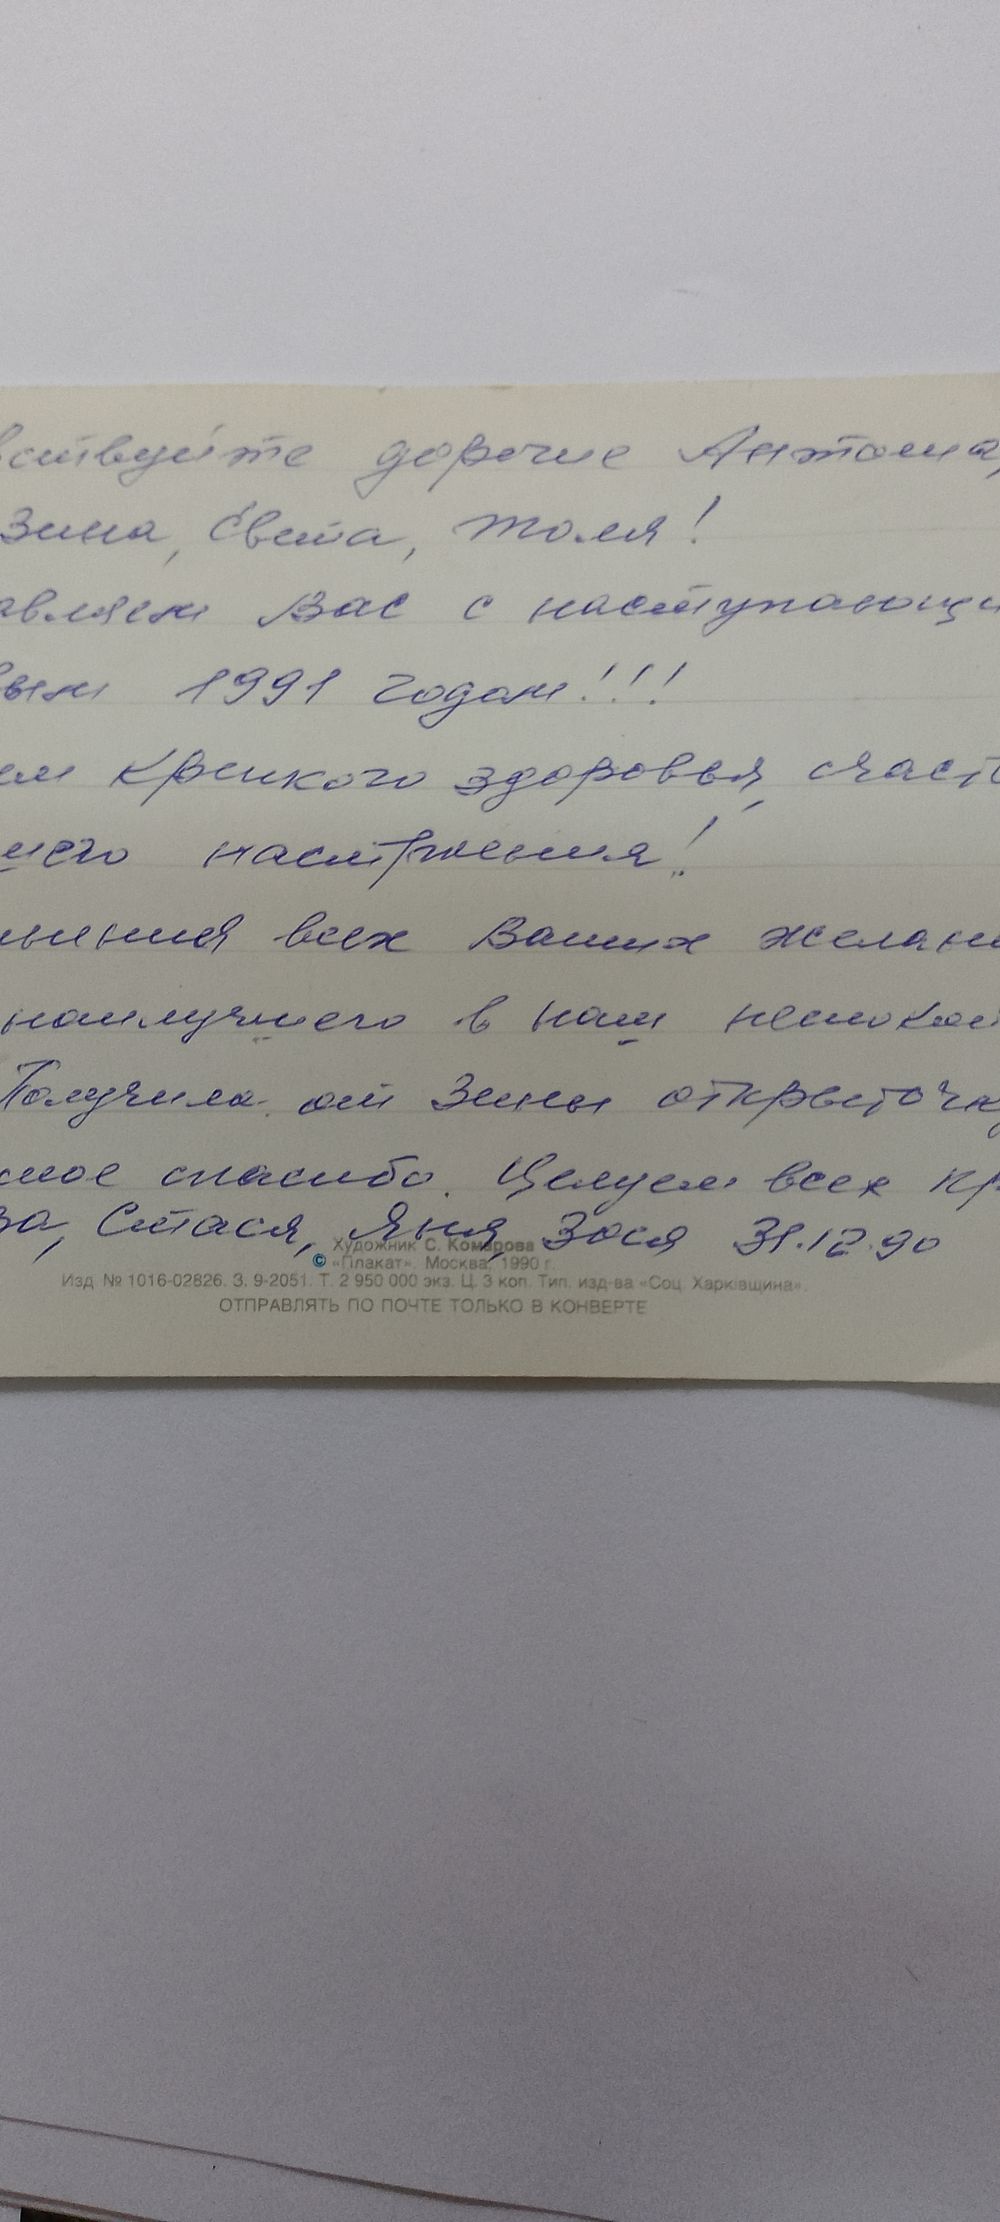 вствуйте дорогие Антонина,
Зина, Света, Толя!
авляем Вас с наступающи
вым 1991 годом!!!
ем крепкого здоровья, счасть
шего настроения!
лнения всех Ваших желани
наилучшего в наш неспокой
Получила от Зины открыточку
мное спасибо. Целуем всех кр
ва, Стася, Яня, Зося 31.12.90
Художник С. Комарова
© «Плакат». Москва, 1990 г.
Изд № 1016-02826. З. 9-2051. Т. 2 950 000 экз. Ц. 3 коп. Тип. изд-ва «Соц. Харківщина».
ОТПРАВЛЯТЬ ПО ПОЧТЕ ТОЛЬКО В КОНВЕРТЕ